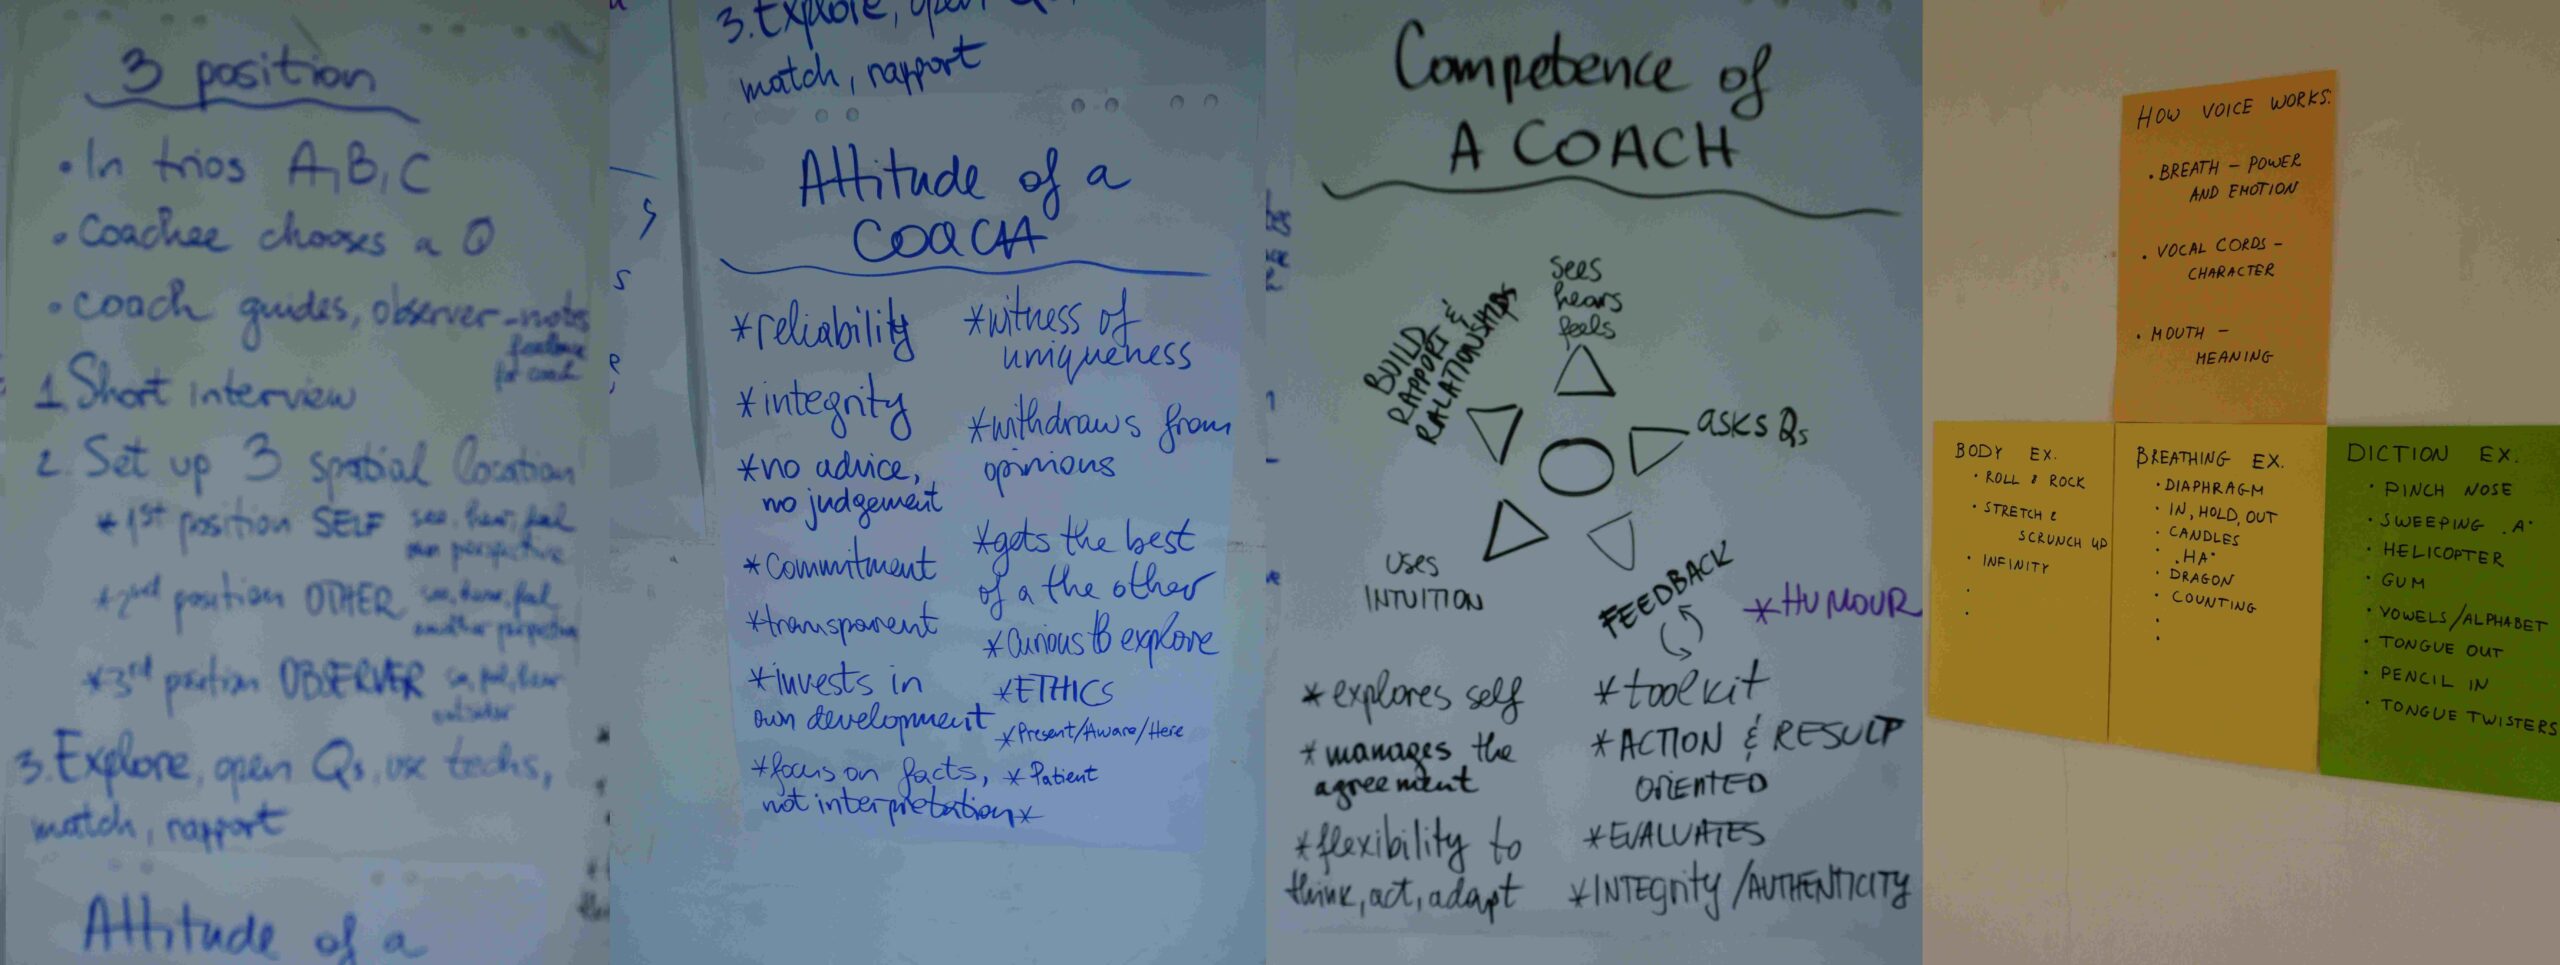 3 position
• In trios A, B, C
• Coachee chooses a Q
• Coach guides, observer - notes
for coach
1. Short interview
2. Set up 3 spatial location
* 1st position SELF see, hear, feel
own perspective
* 2nd position OTHER see, hear, feel
another perspective
* 3rd position OBSERVER see, feel, hear
outsider
3. Explore, open Qs, use techs,
match, rapport
Attitude of a
3. Explore, open Qs,
match, rapport
Attitude of a
COACH
* reliability
* integrity
* no advice,
no judgement
* Commitment
* transparent
* invests in
own development
* focus on facts,
not interpretation *
* witness of
uniqueness
* withdraws from
opinions
* gets the best
of a the other
* Curious to explore
* ETHICS
* Present/Aware/Here
* Patient
Competence of
A COACH
sees
hears
feels
BUILD
RAPPORT &
RALATIONSHIPS
asks Qs
USES
INTUITION
FEEDBACK
* HUMOUR
* explores self
* manages the
agreement
* flexibility to
think, act, adapt
* toolkit
* ACTION & RESULT
ORIENTED
* EVALUATES
* INTEgrity / AUTHENTICITY
HOW VOICE WORKS:
• BREATH – POWER
AND EMOTION
• VOCAL CORDS –
CHARACTER
• MOUTH –
MEANING
BODY EX.
• ROLL & ROCK
• STRETCH &
SCRUNCH UP
• INFINITY
BREATHING EX.
• DIAPHRAGM
• IN, HOLD, OUT
• CANDLES
• "HA"
• DRAGON
• COUNTING
DICTION EX.
• PINCH NOSE
• SWEEPING "A"
• HELICOPTER
• GUM
• VOWELS/ALPHABET
• TONGUE OUT
• PENCIL IN
• TONGUE TWISTERS